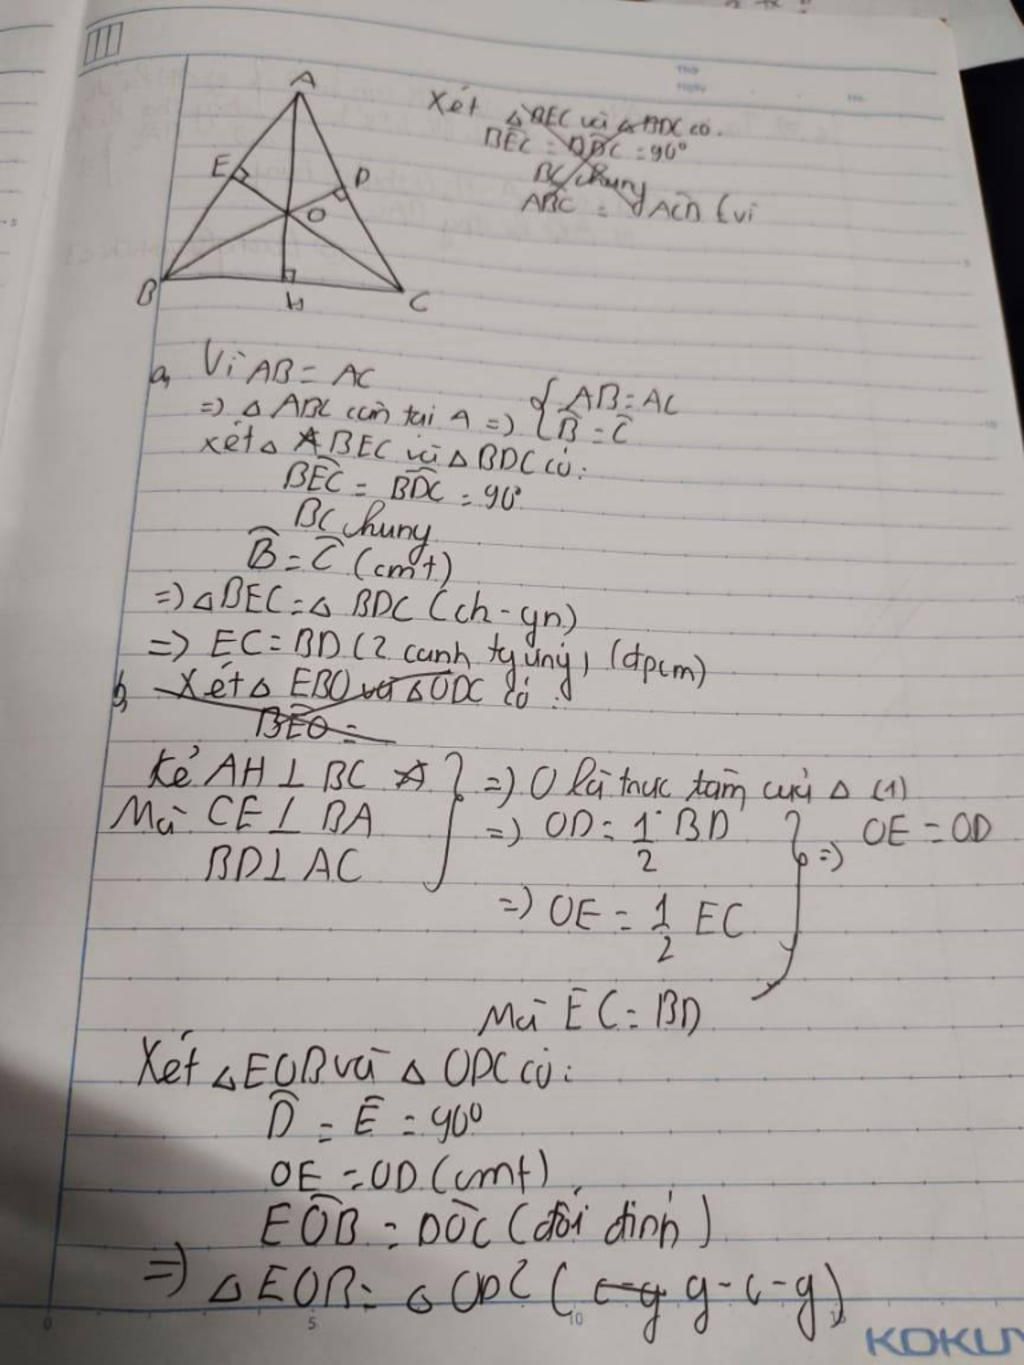 A
E
D
O
B
H
C
Xét △BEC và △BDC có.
BEC = BDC = 90°
BC chung
ABC = ACB (vì
a, Vì AB = AC
=> △ ABC cân tại A => { AB = AC
B = C
xét △ BEC và △ BDC có:
BEC = BDC = 90°
BC chung
B = C (cmt)
=> △BEC = △ BDC (ch - gn)
=> EC = BD (2 cạnh tg ứng) (đpcm)
b, Xét △ EBO và △ ODC có:
BEO =
Kẻ AH ⊥ BC } => O là trực tâm của △ (1)
Mà CE ⊥ BA => OD = 1/2 BD } => OE = OD
BD ⊥ AC
=> OE = 1/2 EC
Mà EC = BD
Xét △EOB và △ ODC có:
D = E = 90°
OE = OD (cmt)
EOB = DOC (đối đỉnh)
=> △EOB = △ ODC (c-g g-c-g)
0 5 10
KOKU